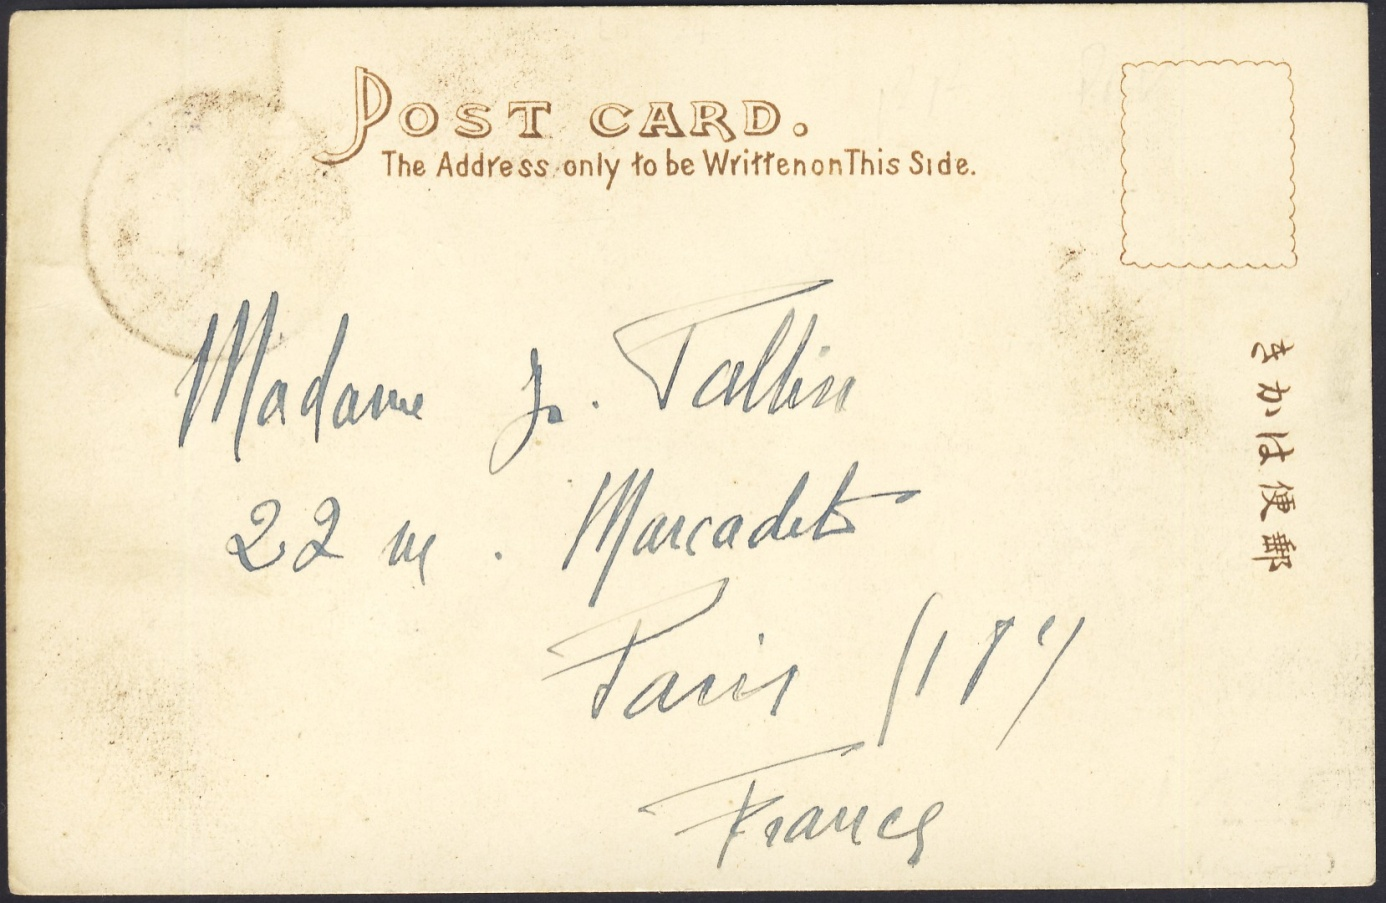 POST CARD.
The Address only to be Written on This Side.
郵便はかき
Madame J. Tallin
22 rue. Marcadet
Paris
France